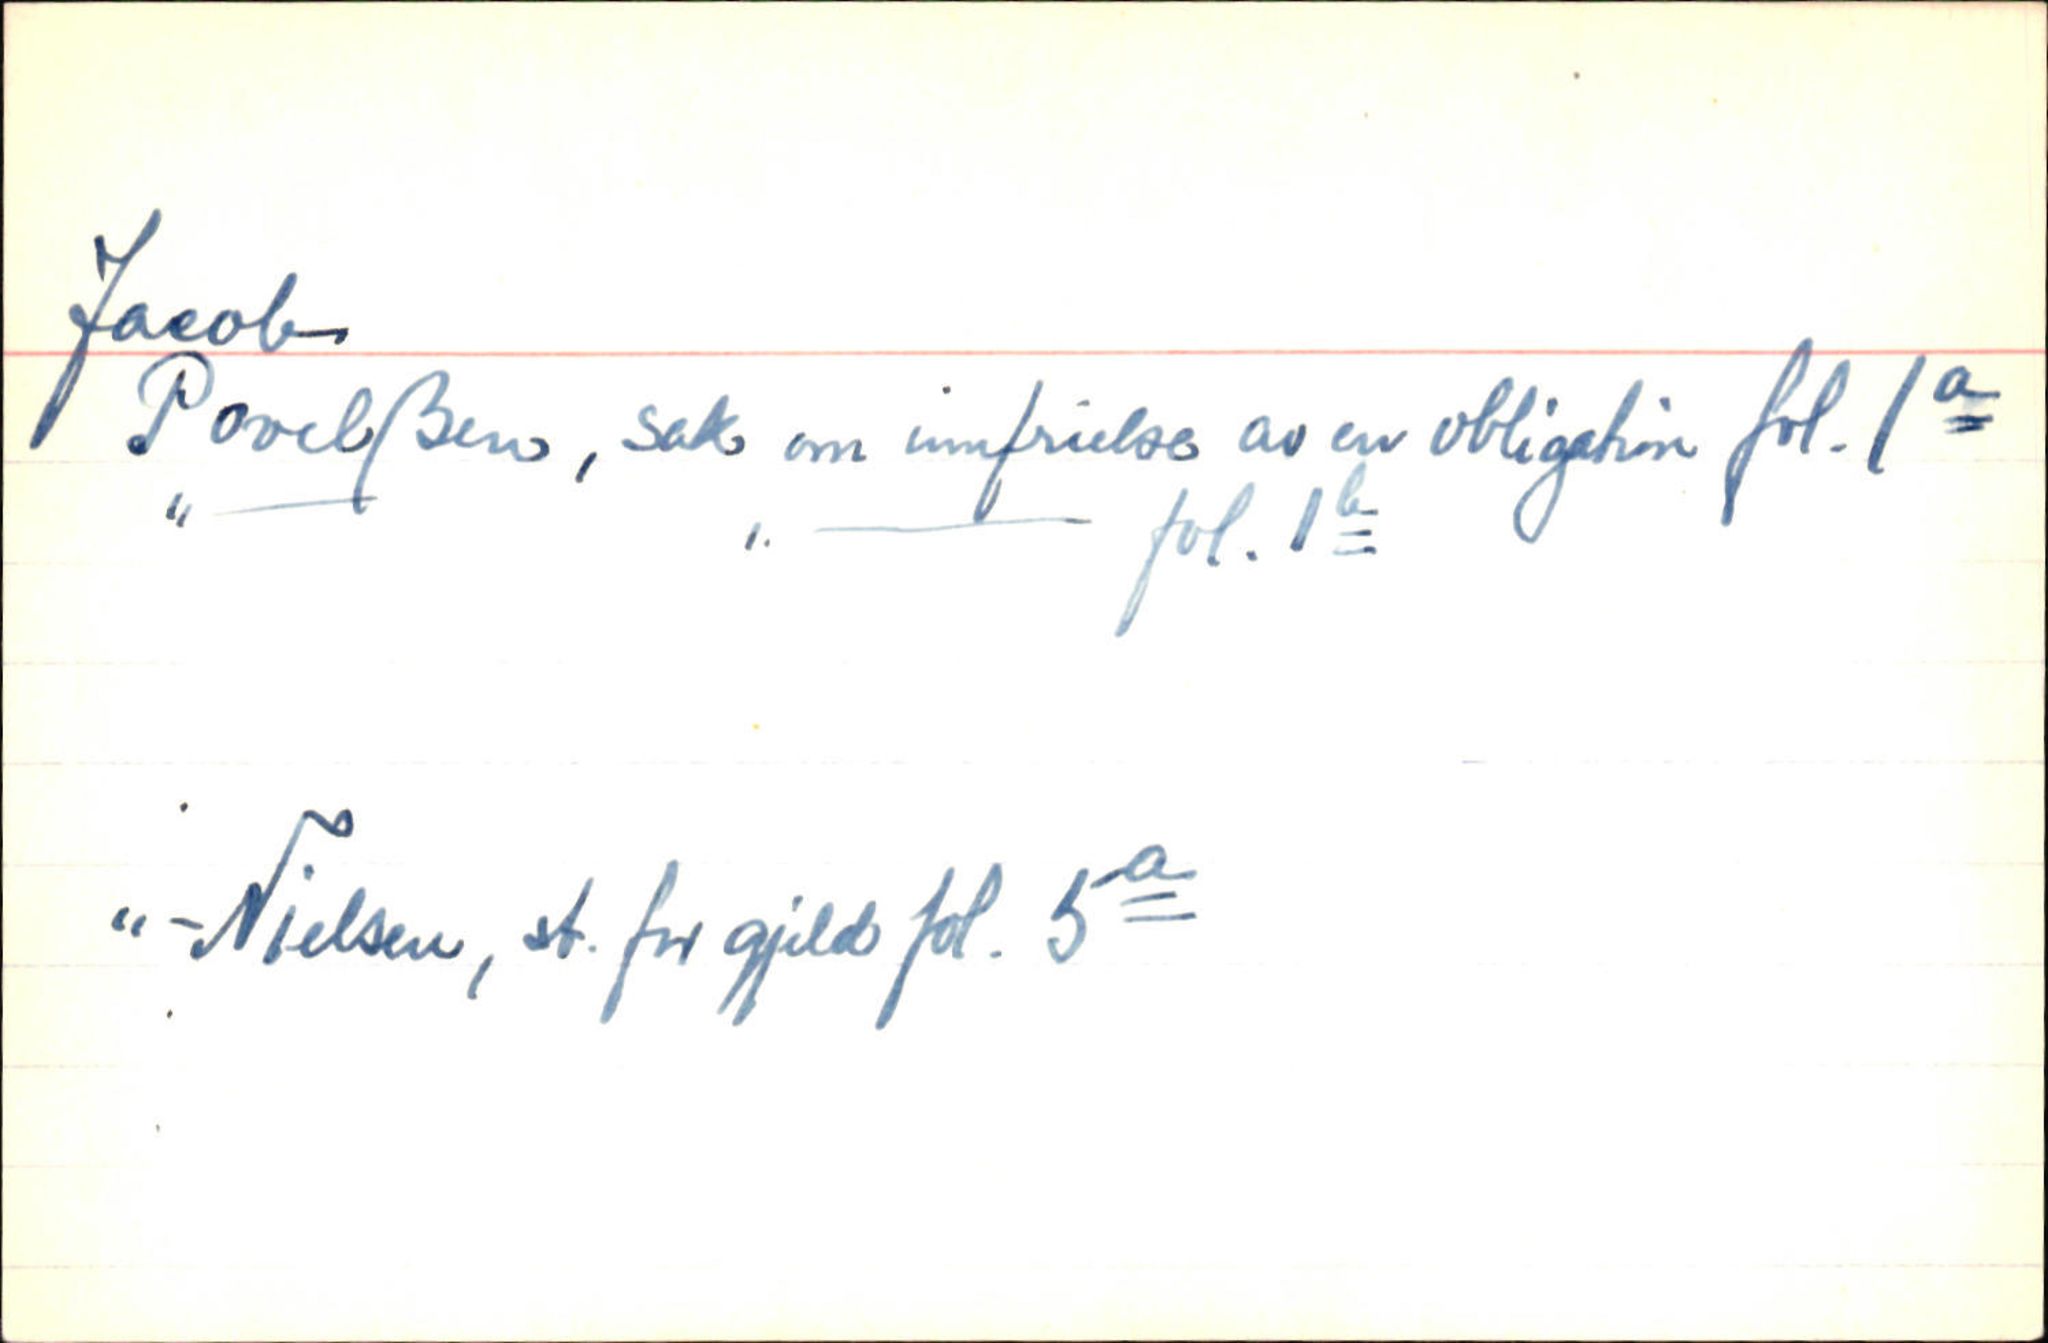 Jacob
Povelßen, sak om innfrielse av en obligation fol. 1a
" — " — fol. 1b
" - Nielsen, st. for gjeld fol. 5a